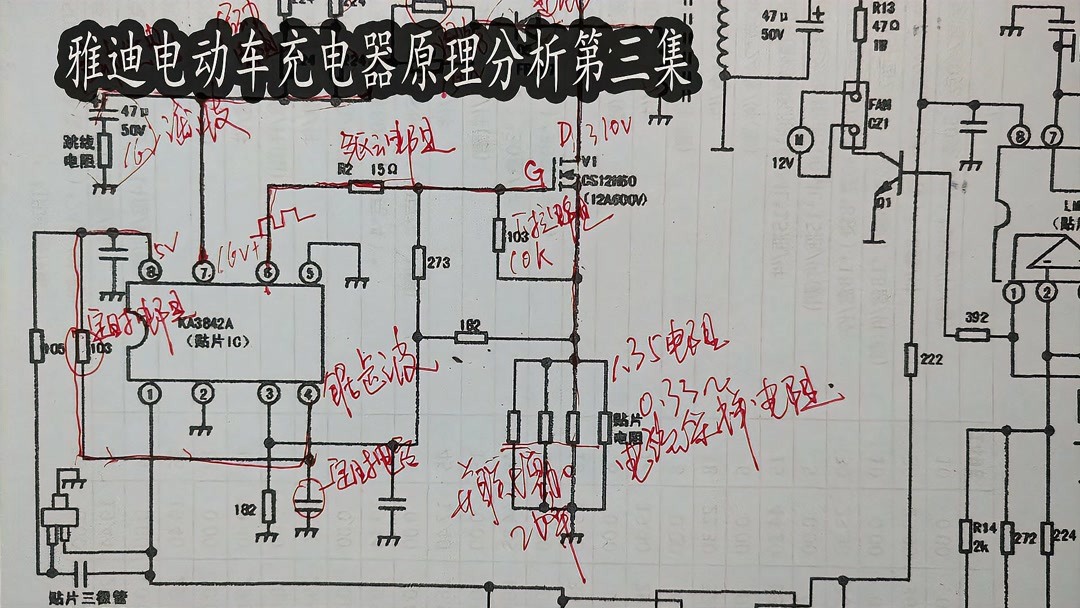 雅迪电动车充电器原理分析第三集
224
224
47μ
50V
跳线
电阻
16V
滤波
驱动电阻
R2 15Ω
G
D 310V
V1
CS12N60
(12A600V)
下拉电阻
103
10K
47μ
50V
R13
47Ω
1W
FAN
CZ1
M
12V
Q1
8
7
5V
16V+
8
7
6
5
KA3842A
(贴片IC)
定时电阻
105
103
273
182
1.35电阻
0.33Ω
电流采样电阻
贴片
电阻
1
2
3
4
定时电容
182
功率
贴片三极管
LM
(贴片
1
2
392
222
R14
2k
272
224